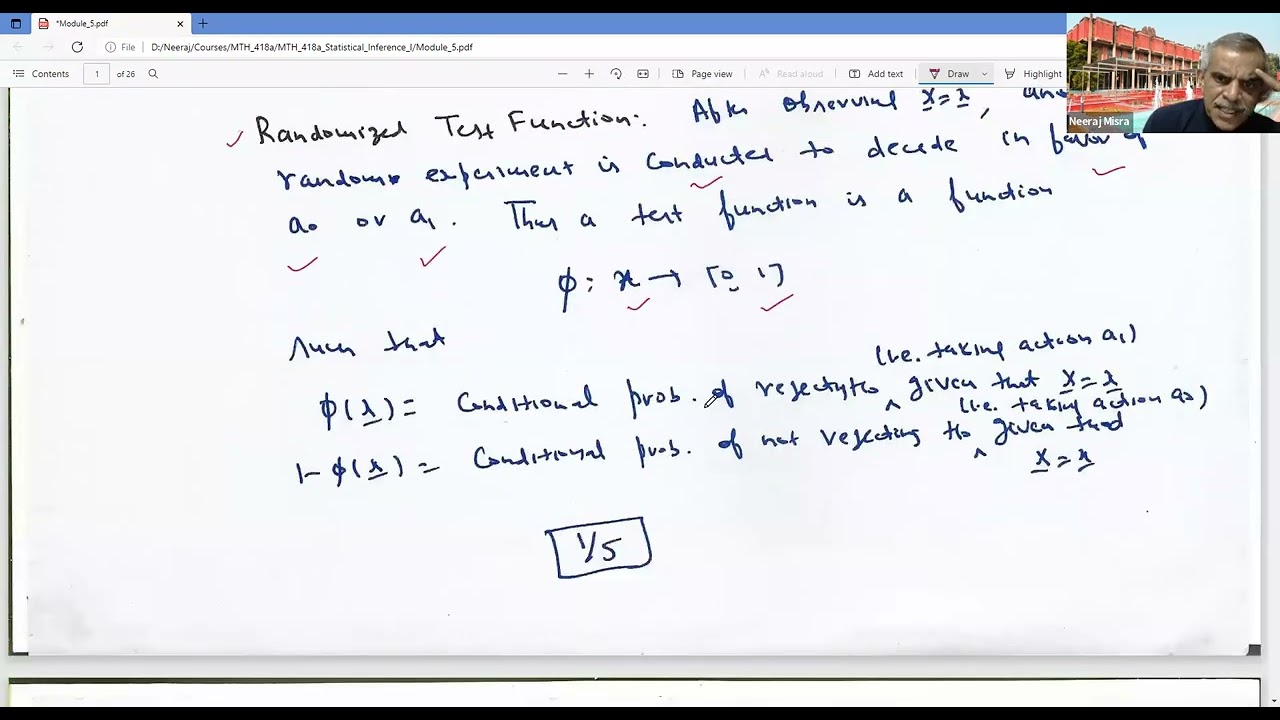 *Module_5.pdf
File D:/Neeraj/Courses/MTH_418a/MTH_418a_Statistical_Inference_I/Module_5.pdf
Contents 1 of 26 Page view Read aloud Add text Draw Highlight
Neeraj Misra
Randomized Test Function: After observing X = x,
random experiment is conducted to decede in favor of
a0 or a1. Thus a test function is a function
φ: x → [0, 1]
such that
(i.e. taking action a1)
φ(x) = conditional prob. of rejecting H0 ^ given that X = x
(i.e. taking action a0)
1- φ(x) = conditional prob. of not rejecting H0 ^ given that
X = x
1/5